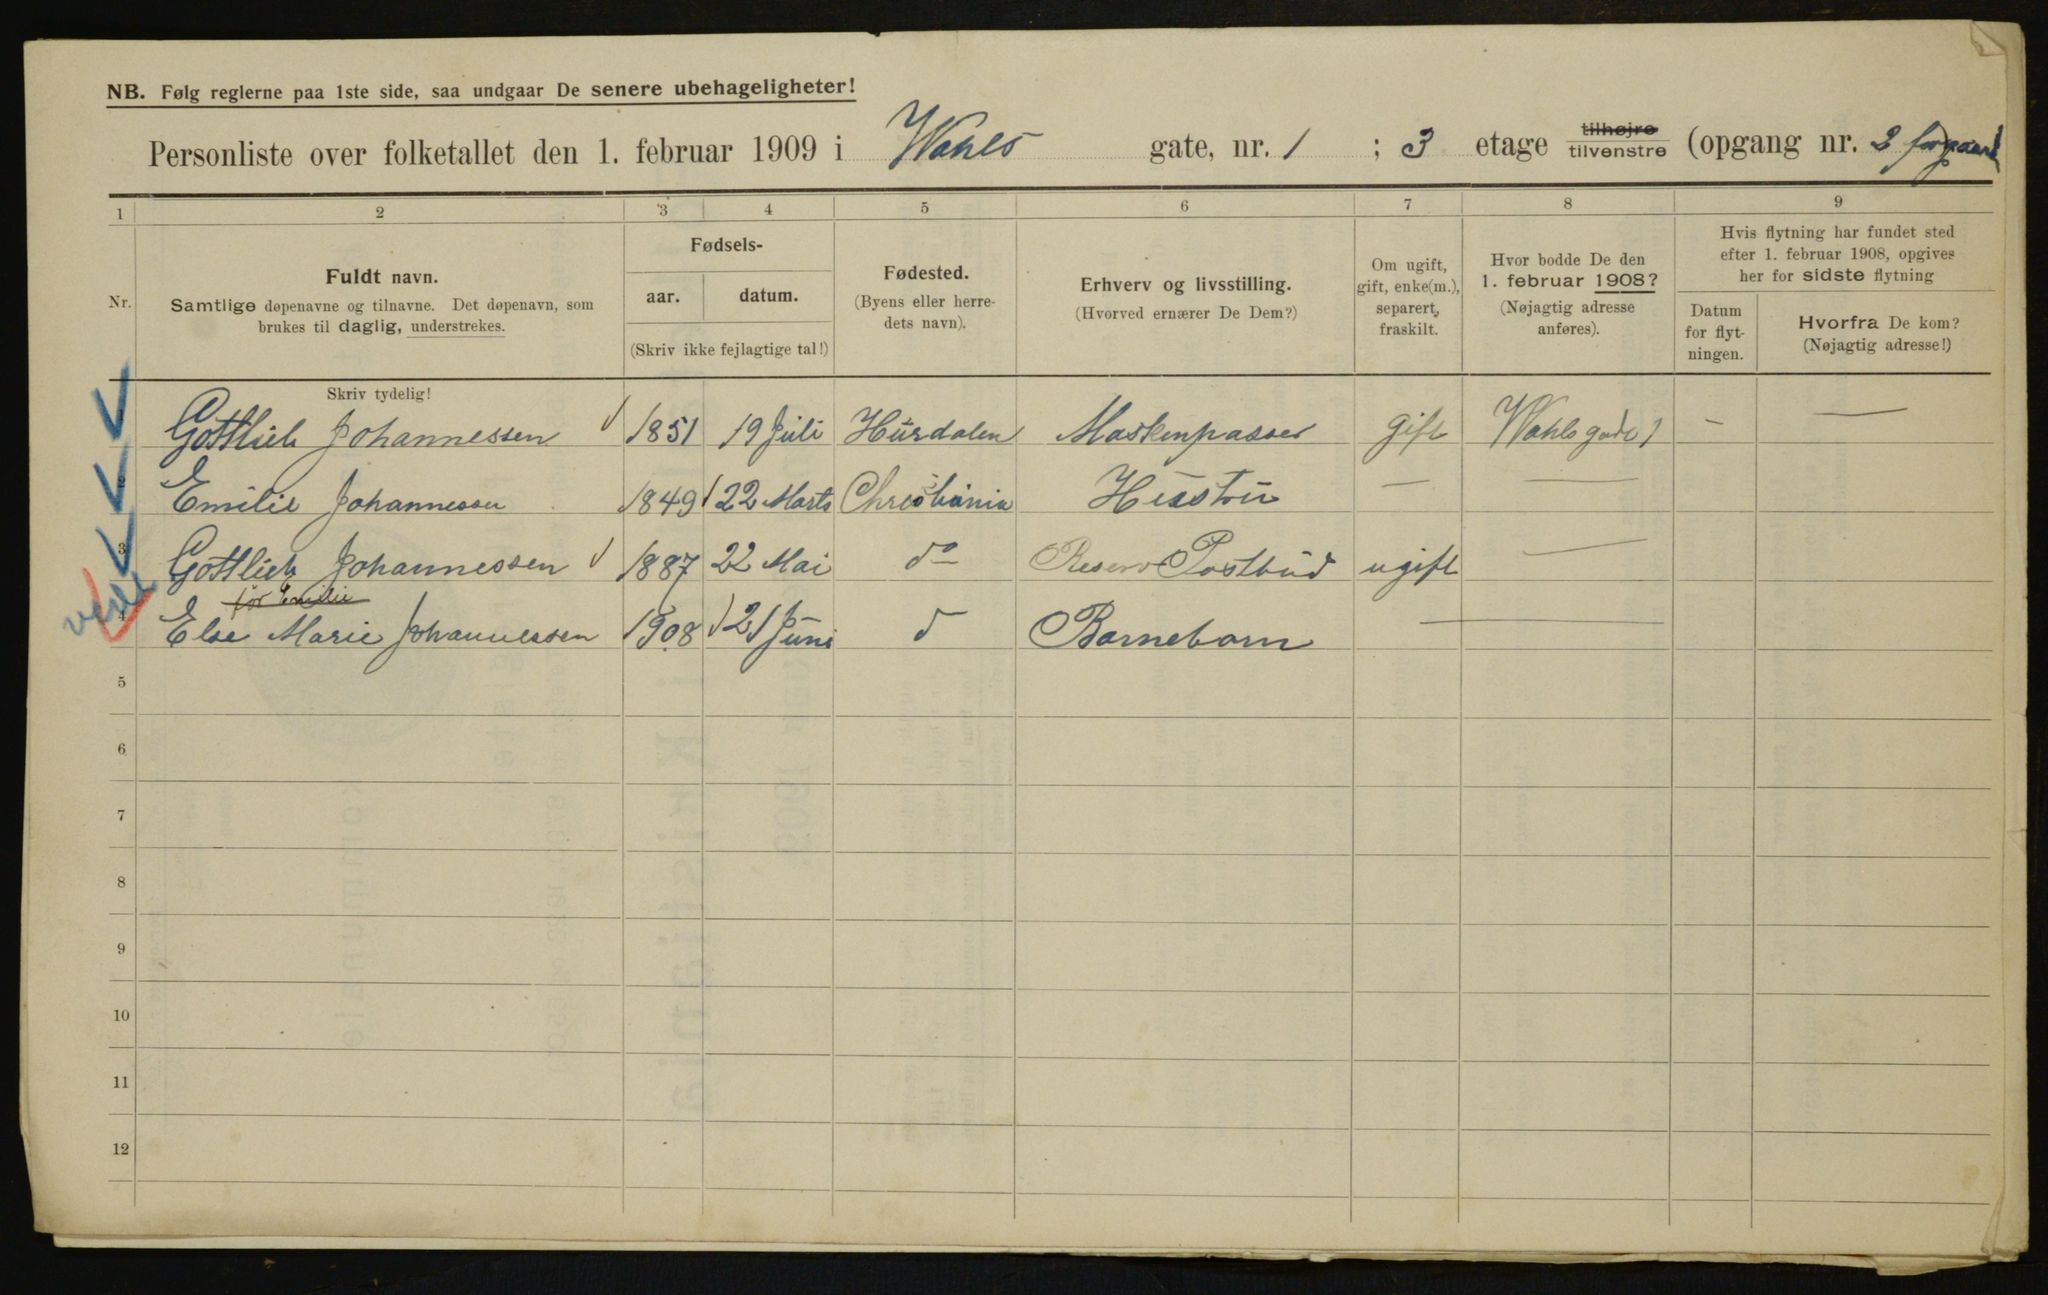 NB. Følg reglerne paa 1ste side, saa undgaar De senere ubehageligheter!
Personliste over folketallet den 1. februar 1909 i Wahls gate, nr. 1 ; 3 etage tilhøjre tilvenstre (opgang nr. 2 forgaard
1 2 3 4 5 6 7 8 9
Nr.
Fuldt navn.
Samtlige døpenavne og tilnavne. Det døpenavn, som
brukes til daglig, understrekes.
Skriv tydelig!
Fødsels-
aar. datum.
(Skriv ikke fejlagtige tal!)
Fødested.
(Byens eller herre-
dets navn).
Erhverv og livsstilling.
(Hvorved ernærer De Dem?)
Om ugift,
gift, enke(m.),
separert,
fraskilt.
Hvor bodde De den
1. februar 1908?
(Nøjagtig adresse
anføres).
Hvis flytning har fundet sted
efter 1. februar 1908, opgives
her for sidste flytning
Datum
for flyt-
ningen.
Hvorfra De kom?
(Nøjagtig adresse!)
1 Gottlieb Johannessen 1851 19 Juli Hurdalen Maskenpasser gift Wahls gade 1 - —
2 Emilie Johannessen 1849 22 Marts Christiania Hustru — —
3 Gottlieb Johannessen 1887 22 Mai do Reserv Postbud ugift —
for Emilie
4 Else Marie Johannessen 1908 21 Juni d Barnebarn —
5
6
7
8
9
10
11
12